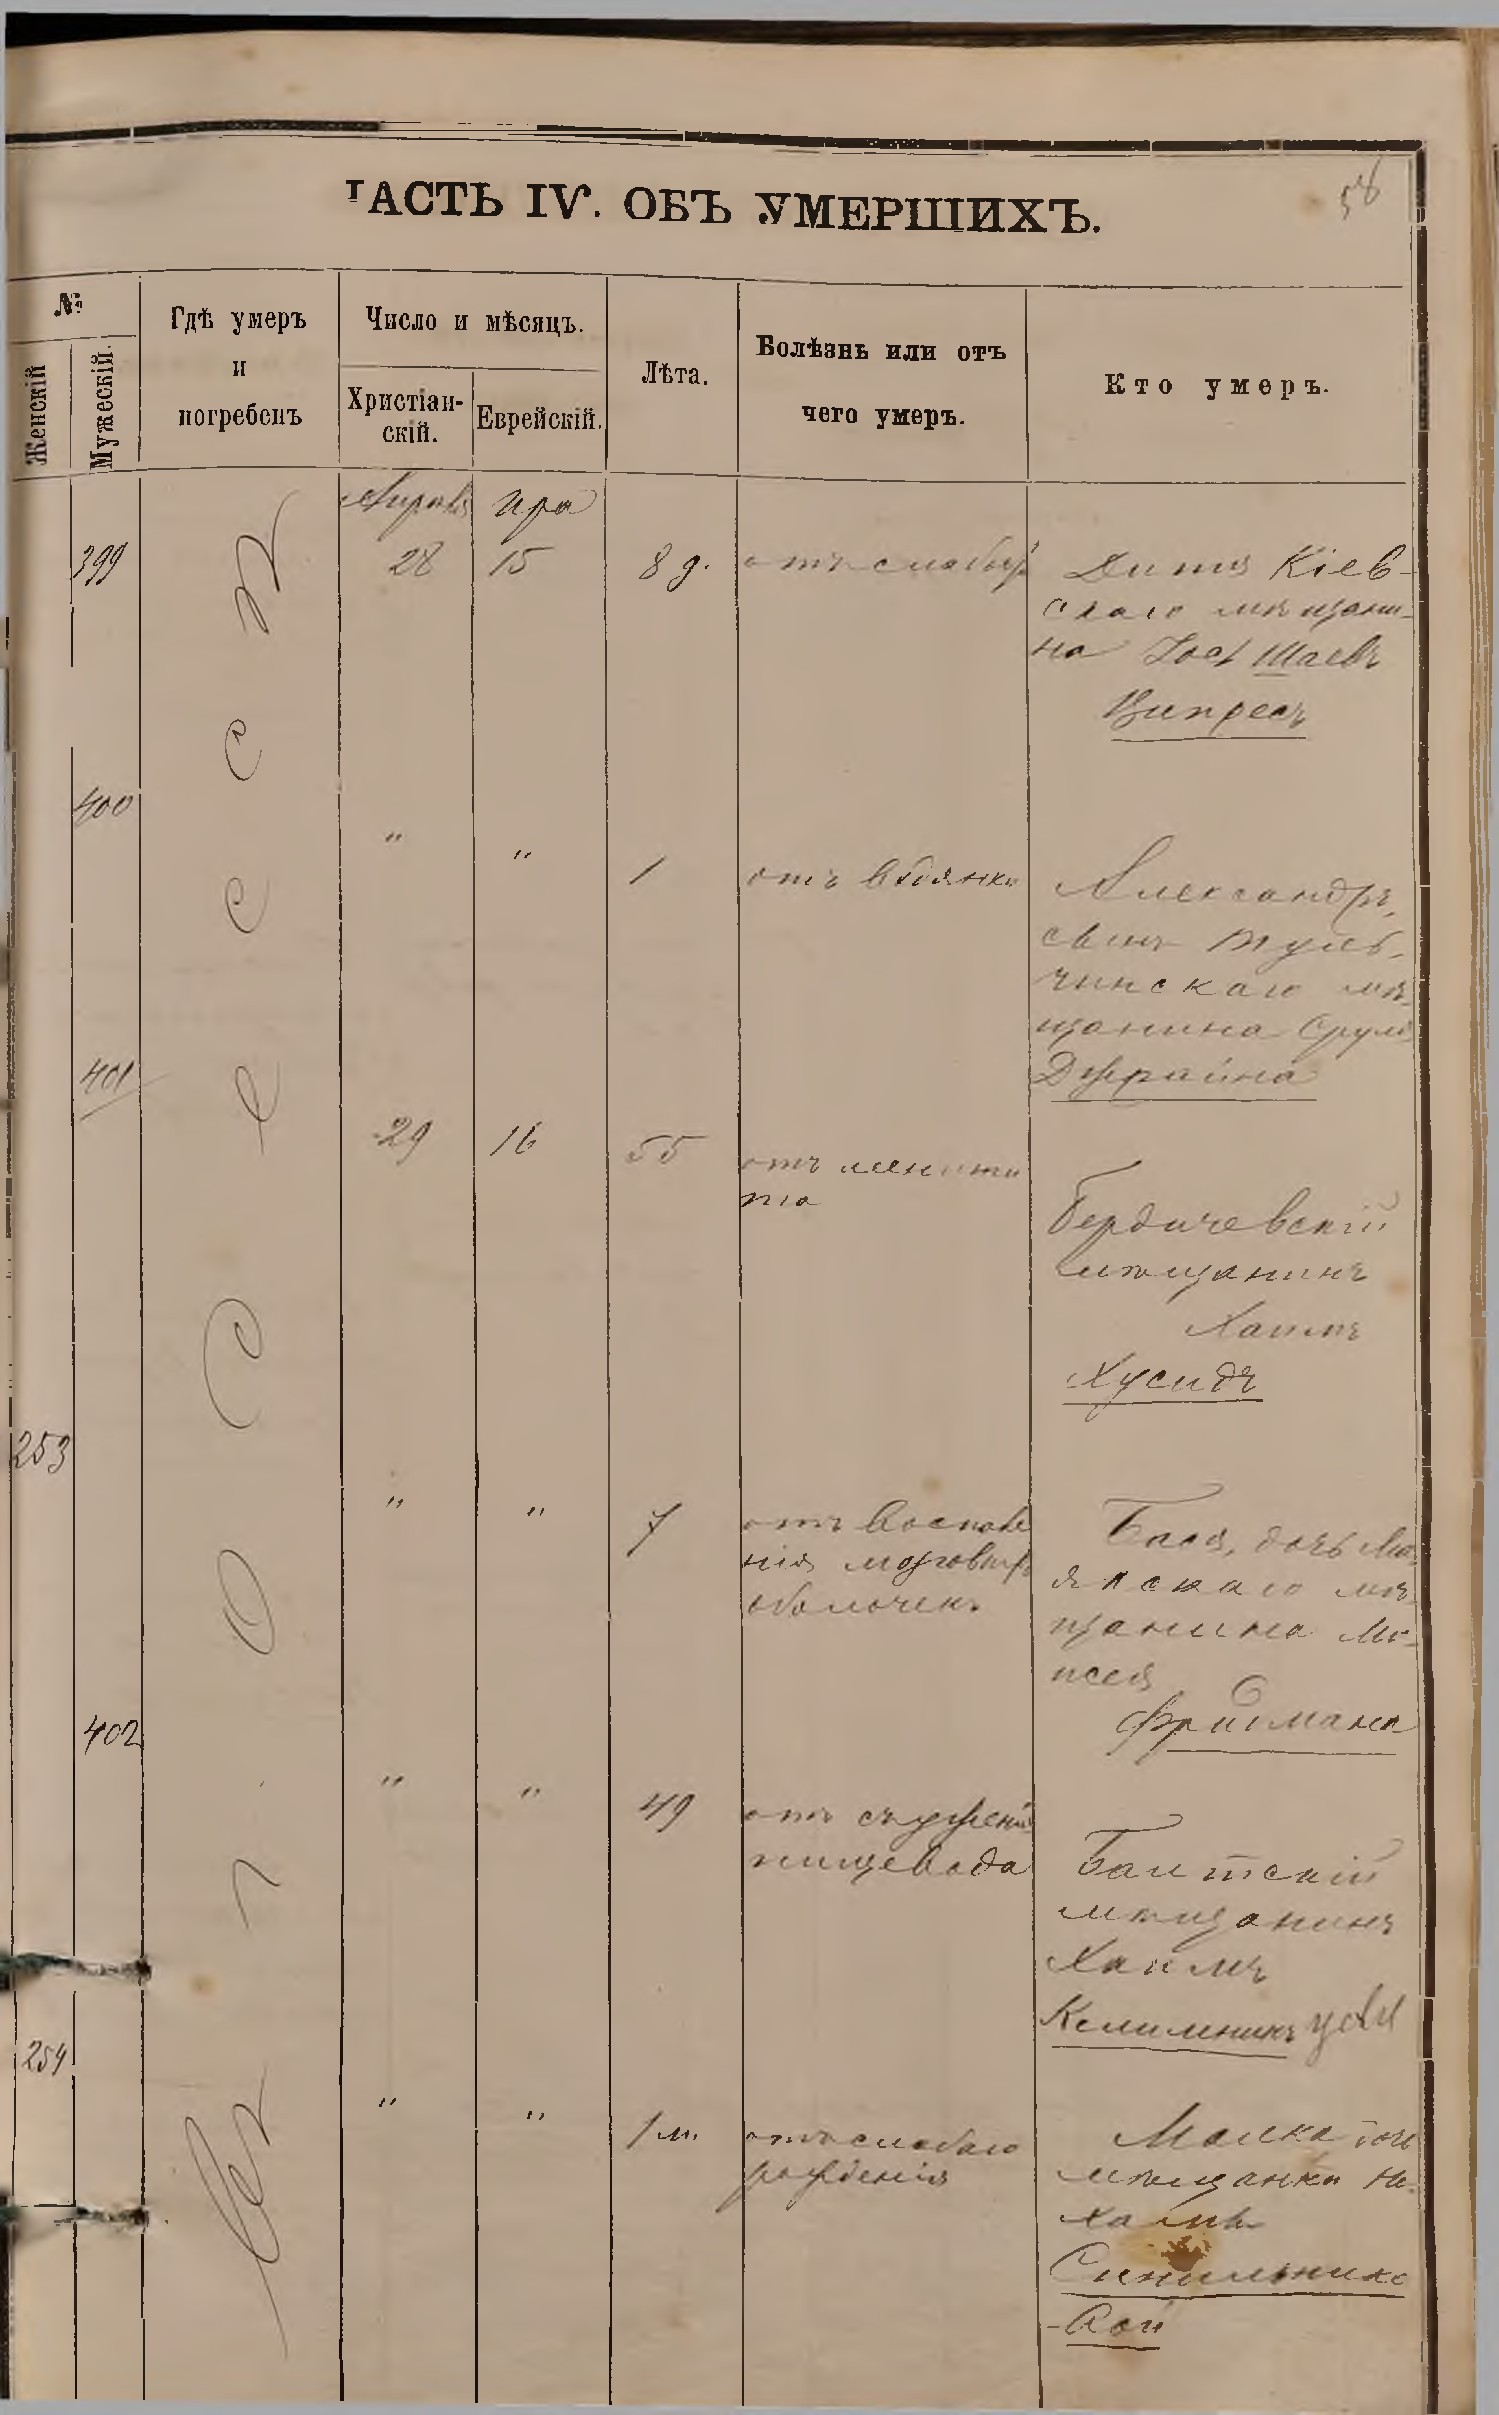 ЧАСТЬ IV. ОБЪ УМЕРШИХЪ.
58
№
Женскій
Мужескій.
Гдѣ умеръ
и
погребенъ
Число и мѣсяцъ.
Христіан-
скій.
Еврейскій.
Лѣта.
Болѣзнь или отъ
чего умеръ.
Кто умеръ.
Апрѣля Ира
399
28
15
8 д.
отъ слабыхъ
Дитя Кіев-
скаго мѣщани-
на Іос. Шаевъ
Ципресъ
400
"
"
1
отъ
Александръ,
сынъ Туль-
чинскаго мѣ-
щанина Сруля
401
29
16
55
отъ менинги
та
Бердичевскій
мѣщанинъ
Хаимъ
Хусидъ
253
"
"
7
отъ воспале
нія мозговыхъ
оболочекъ
Бася, дочь
мѣ-
щанина Мо-
исея
Фридмана
402
"
"
49
отъ съуженія
пищевода
Балтскій
мѣщанинъ
Хаимъ
Келимникъ
254
"
"
1 м.
отъ слабаго
рожденія
Малка дочь
мѣщанки Не-
хамы
Синильнико
-вой